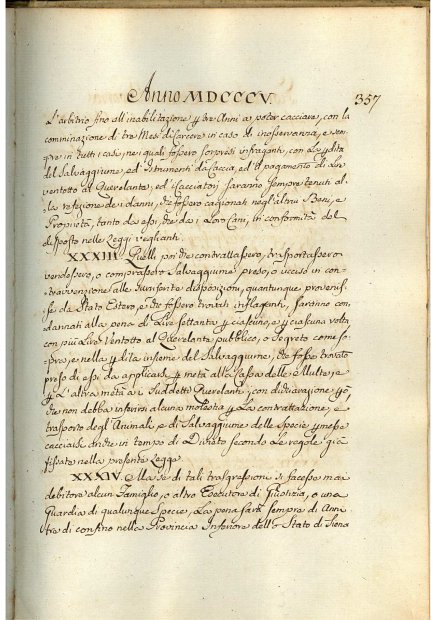 Anno MDCCCV.
357
L'arbitrio fino all'inabilitazione p tre Anni a poter cacciare, con la
comminazione di tre Mesi di Carcere in caso di inosservanza, e sem-
pre in tutti i casi, ne i quali fossero sorpresi infraganti, con La p dita
del Salvaggiume, ed Istrumenti da Caccia, ed il pagamento di Lire
ventotto al Querelante, ed i Cacciatori saranno sempre tenuti al-
la refezione de i danni, che fossero cagionati negl'altrui Beni, e
Proprietà, tanto da essi, che da i Loro Cani, in conformità del
disposto nelle Leggi veglianti.
XXXIII. Quelli poi che contrattassero, trasportassero
vendessero, o comprassero Salvaggiume preso, o ucciso in con-
travvenzione alle surriferite disposizioni, quantunque provenis-
se da Stato Estero, e che fossero trovati inflagenti, saranno con-
dannati alla pena di Lire settanta p ciascuno, e p ciascuna volta
con più Lire Ventotto al Querelante pubblico, o segreto come so-
pra, e nella p dita insieme del Salvaggiume, che fosse trovato
presso di essi da applicarsi p metà alla Cassa delle Multe, e
p L'altra metà a i Suddetti Querelanti; con dichiarazione però,
che non debba inferirsi alcuna molestia p La contrattazione, e
trasporto degl'Animali, e di Salvaggiume delle Specie p messe
cacciarsi anche in tempo di Divieto secondo Le regole già
fissate nella presente Legge.
XXXIV. Ma se di tali trasgressioni si facesse mai
debitore alcun Famiglio, o altro Esecutore di Giustizia, o una
Guardia di qualunque Specie, La pena sarà sempre di Anni
tre di confino nella Provincia Inferiore dello Stato di Siena